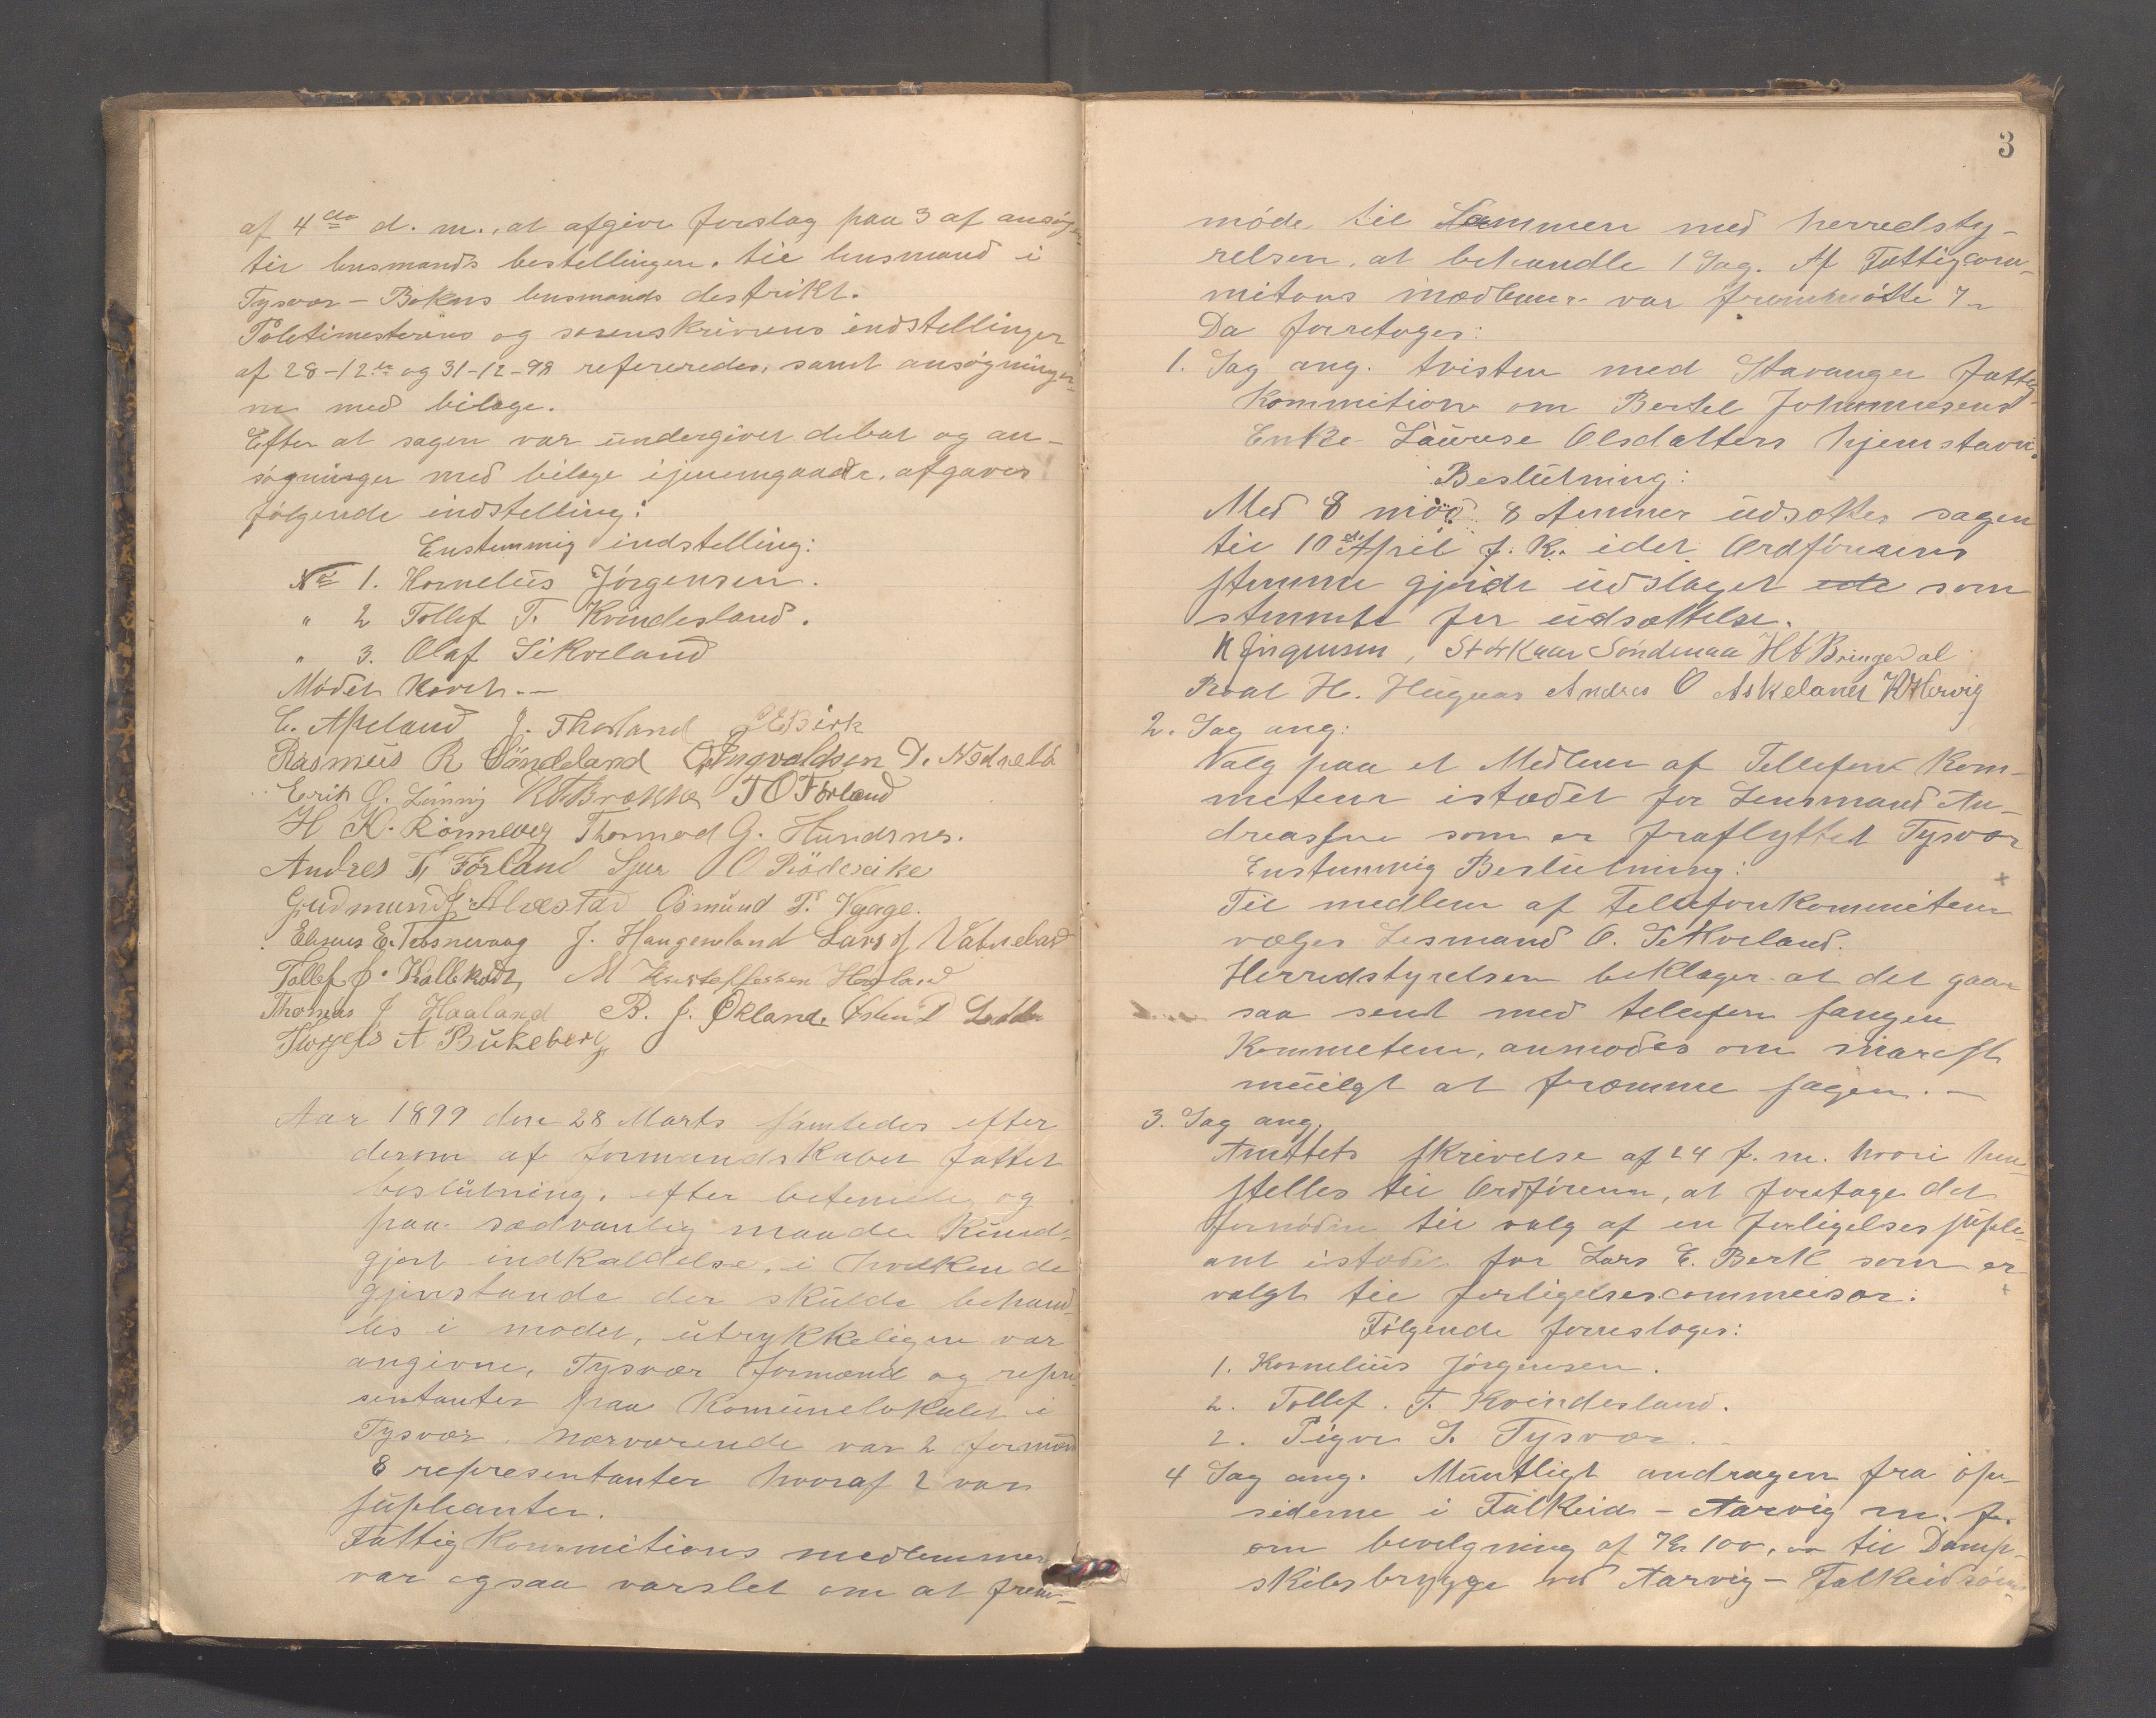 af 4de d. m., at afgive forslag paa 3 af ansøg-
tir lensmands bestellingen. til lensmand i
Tysvær - Bokns lensmands destrikt.
Politimesterens og sorenskriverens indstellinger
af 28-12te og 31-12-98 refereredes, samt ansøgninger-
ne med bilage.
Efter at sagen var undergivet debat og an-
søgninger med bilage igjennemgaaede, afgaves
følgende indstelling:
Enstemmig indstelling:
No 1. Kornelius Jørgensen.
" 2 Tollef T. Kvindesland.
" 3. Olaf Sikveland
Mødet hævet.-
C. Apeland J. Thorland Birk
Rasmus R Søndeland Ingvaldsen D. Nødseld
Erik G. Lunnig Brække T O Førland
H K. Rønnevig Thormod G. Hundsnes.
Andres T. Førland Sjur O Rödseike
Gudmund Alvestad Osmund P. Vaage.
Eliseus E. Trosnevaag J. Haugenland Lars J Vatneland
Tollef Kallekodt M Kristoffersen Hesland
Thomas J Haaland B. J. Økland. Østen D Lodden
Thorgels A Bukeberg
Aar 1899 den 28 Marts samledes efter
derom af formandskabet fattet
beslutning, efter betimelig og
paa sædvanlig maade kund-
gjort indkaldelse, i hvilken de
gjenstande der skulde behand-
les i mødet, utrykkeligen var
angivne, Tysvær formænd og repre-
sentanter paa Komunelokalet i
Tysvær. Nærværende var 2 formænd
8 representanter hvoraf 2 var
supleanter.
Fattigkommitions medlemmer
var ogsaa varslet om at frem-
3
møde til Sammen med herredsty-
relsen, at behandle 1 Sag. Af Fattigcom-
mitons medlemer var fremmøtte 7-
Da forretoges:
1. Sag ang. tvisten med Stavanger fattig-
kommition om Bertel Johannesens
Enke Lauruse Olsdatters hjemstavn.
Beslutning:
Med 8 mod 8 stemmer udsættes sagen
til 10de April f. k. idet Ordførerens
stemme gjorde udslaget ede som
stemmte for udsættelse.
K Jørgensen, Størkaar Søndenaa H A Bringedal
Roal H. Hugnas Andres O Askeland K Hervig
2. Sag ang:
Valg paa et Medlem af Tellefon Kom-
meteen istædet for Lensmand An-
dreassen som er fraflyttet Tysvær
Enstemmig Beslutning:
Til medlem af Tellefonkommiteen
vælges Lesmand O. Sikveland.
Herredstyrelsen beklager at det gaar
saa sent med tellefon sangen
Kommeteen, anmodes om snarest
muilgt at fræmme sagen.-
3. Sag ang.
Amttets skrivelse af 24 f. m. hvori hen
stelles til Ordføreren, at foretage det
fornødne til valg af en forligelses suple-
ant istædet for Lars E. Berk som er
valgt til forligelsescommisær.
Følgende foresloges:
1. Kornelius Jørgensen.
2. Tollef. T. Kvindesland.
2. Sigve S. Tysvær.
4 Sag ang. Muntligt andragen fra op-
sidderne i Falkeid - Aarvig m. fl.
om bevilgning af Kr 100,00 til Damp-
skibsbrygge ved Aarvig - Falkeid